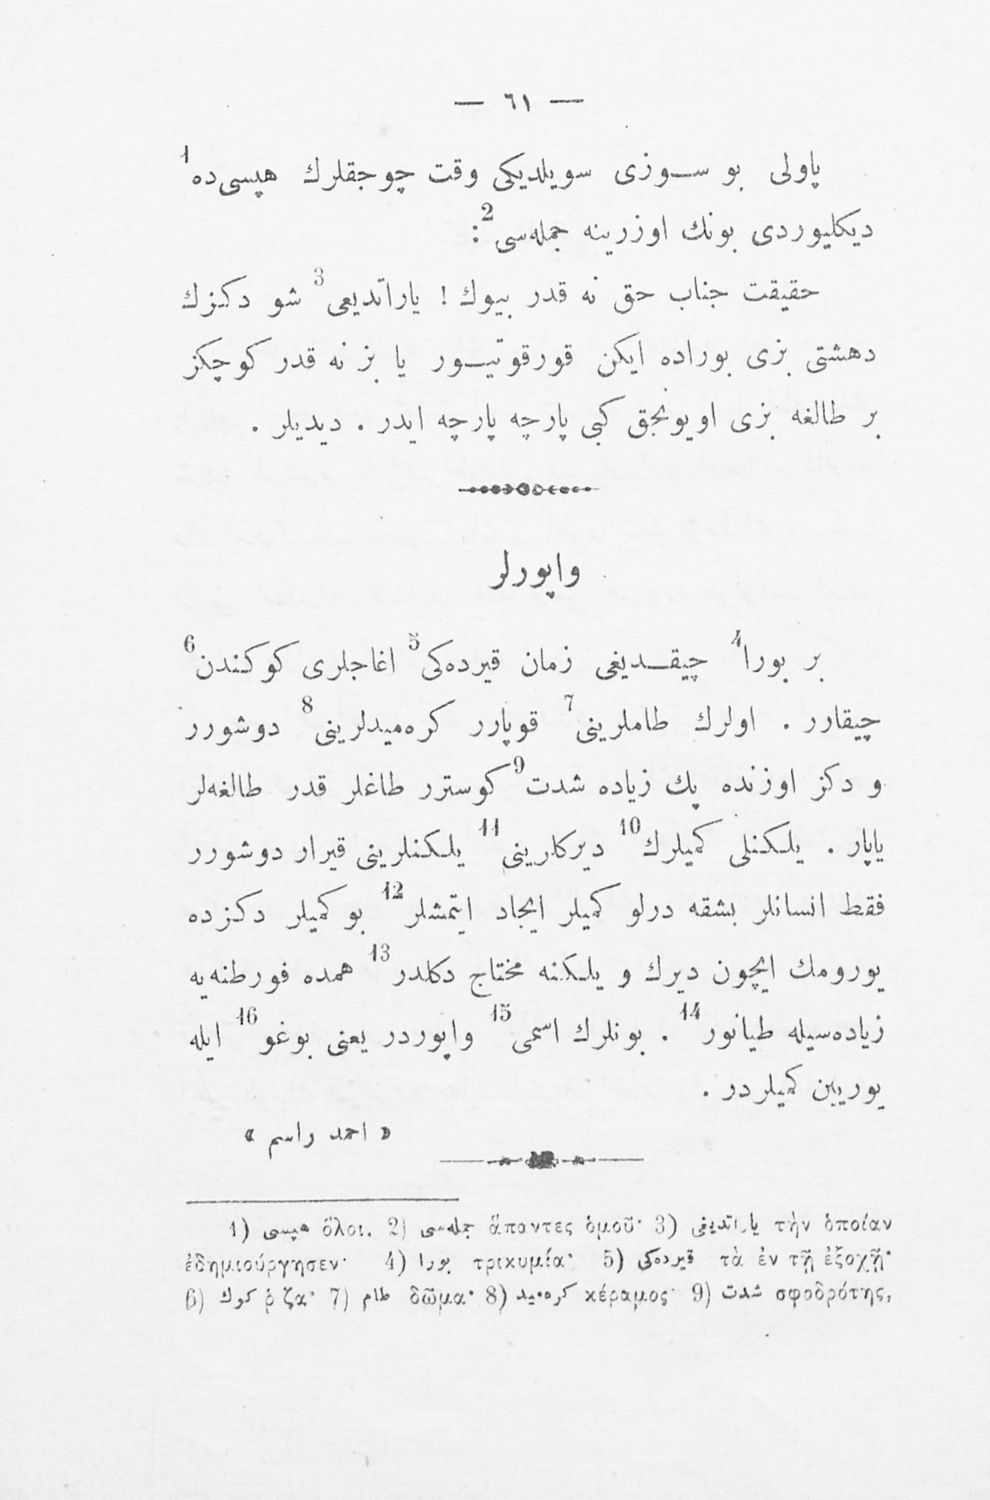 — ٦١ —
پاولی بو ســوزی سویلدیکی وقت چوجقلرك هپسی‌ده1
دیکلیوردی بونك اوزرینه جمله‌سی2:
حقیقت جناب حق نه قدر بیوك ! یاراتدیغی3 شو دکزك
دهشتی بزی بوراده ایکن قورقوتیــور یا بز نه قدر کوچکز
بر طالغه بزی اویونجق کبی پارچه پارچه ایدر . دیدیلر .
واپورلر
بر بورا4 چیقــدیغی زمان قیرده‌کی5 اغاجلری کوکندن6
چیقارر . اولرك طاملرینی7 قوپارر کره‌میدلرینی8 دوشورر
و دکز اوزنده پك زیاده شدت9 کوسترر طاغلر قدر طالغه‌لر
یاپار . یلکنلی کمیلرك10 دیرکارینی11 یلکنلرینی قیرار دوشورر
فقط انسانلر بشقه درلو کمیلر ایجاد ایتمشلر12 بو کمیلر دکزده
یورومك ایچون دیرك و یلکنه محتاج دکلدر13 همده فورطنه‌یه
زیاده‌سیله طیانور14 . بونلرك اسمی15 واپوردر یعنی بوغو16 ایله
یوریین کمیلردر .
« احمد راسم »
1) هپسی ὅλοι. 2) جمله‌سی ἅπαντες ὁμοῦ· 3) یاراتدیغی τὴν ὁποίαν
ἐδημιούργησεν· 4) بورا τρικυμία· 5) قیرده‌کی τὰ ἐν τῇ ἐξοχῇ·
6) كوك ῥίζα· 7) طام δῶμα· 8) کره‌مید κέραμος· 9) شدت σφοδρότης,